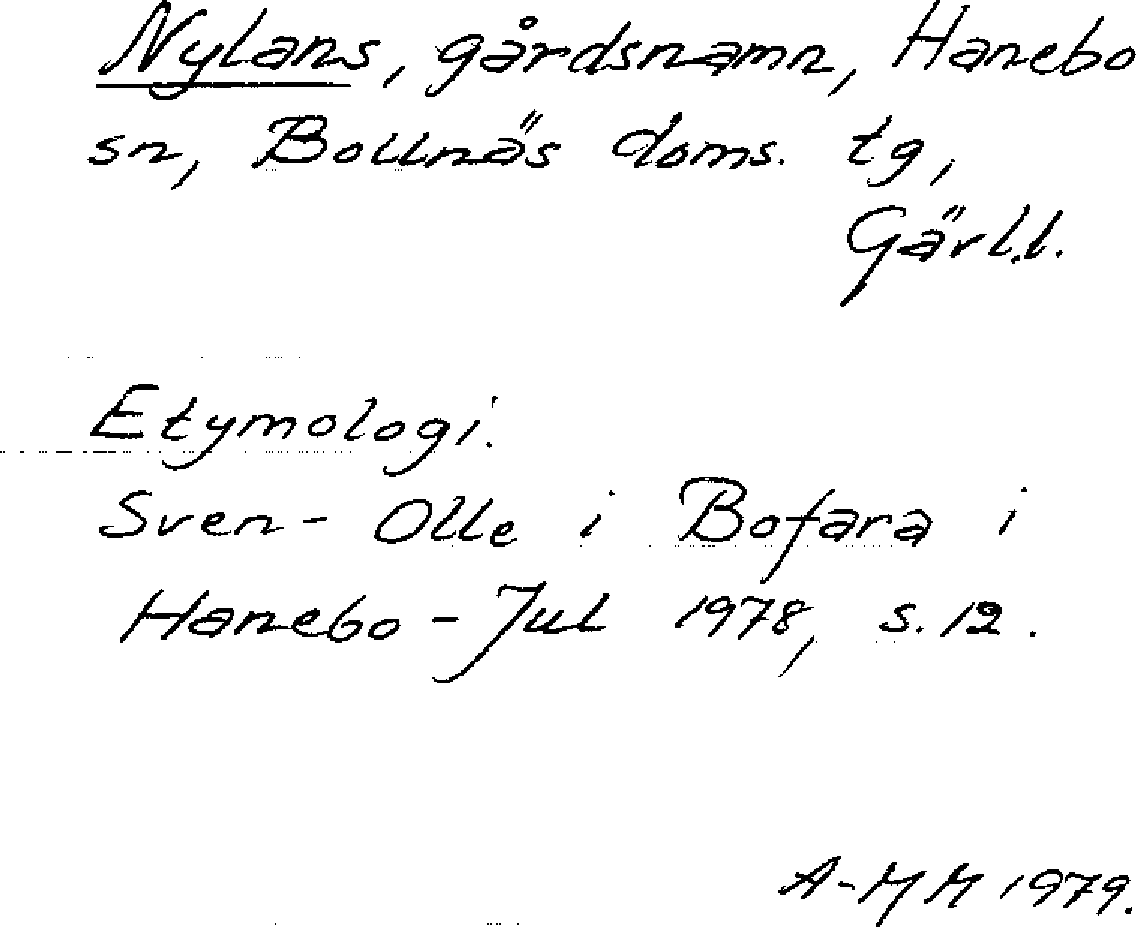 Nylans, gårdsnamn, Hanebo
sn, Bollnäs doms. tg,
Gävl.l.
Etymologi.
Sven-Olle i Bofara i
Hanebo-Jul 1978, s. 12.
A-MM 1979.